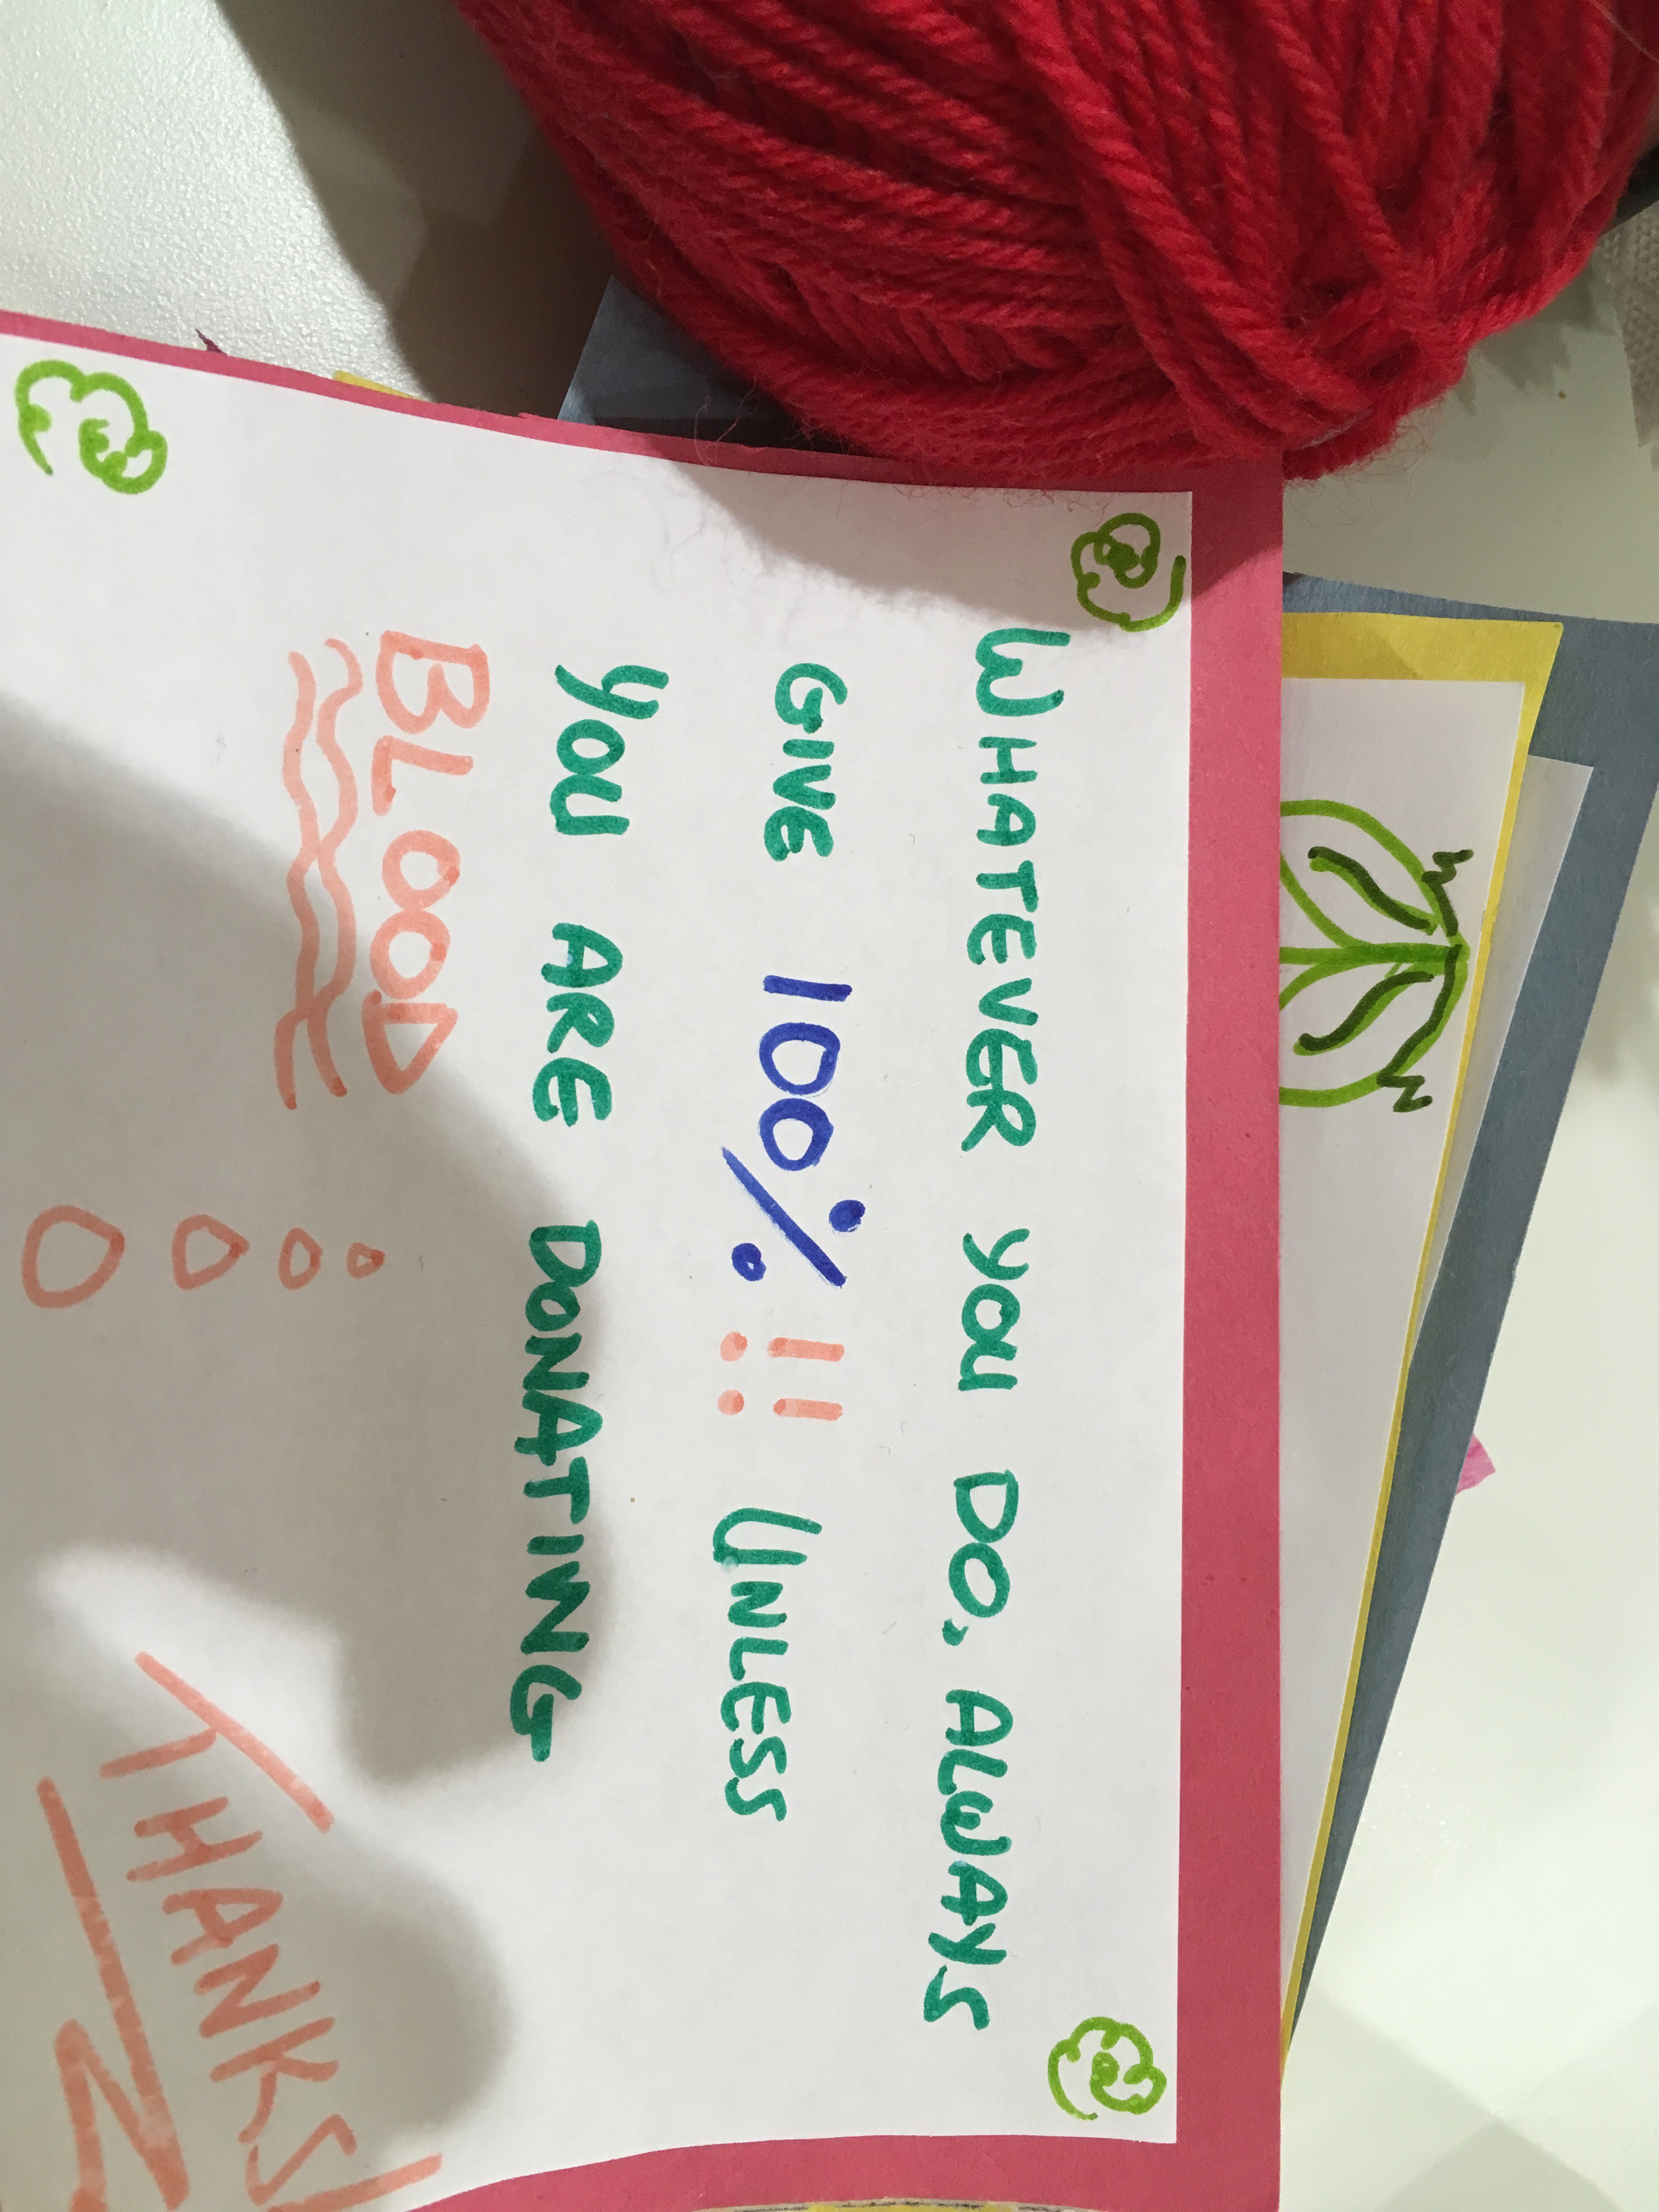 WHATEVER YOU DO, ALWAYS
GIVE 100% !! UNLESS
YOU ARE DONATING
BLOOD
THANKS!